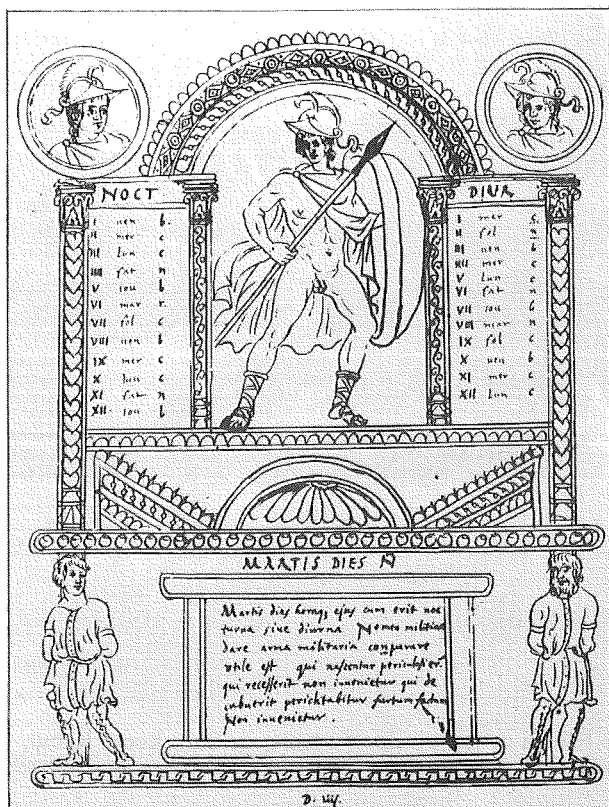 NOCT
I uen b.
II mer c
III lun c
IIII sat n
V iou b
VI mar r.
VII sol c
VIII uen b
IX mer c
X lun c
XI sat n
XII iou b
DIVR
I mar
II sol n
III uen b
IIII mer c
V lun c
VI sat n
VII iou b
VIII mar n
IX sol c
X uen b
XI mer c
XII lun c
MARTIS DIES N
Martis dies horaq, ejus cum erit noc
turna siue diurna Nomen militiae
dare arma militaria conparare
utile est qui nascentur
qui recesserit non inuenietur qui de
cubuerit periclitabitur furtum factum
Non inuenietur.
D. iiij.